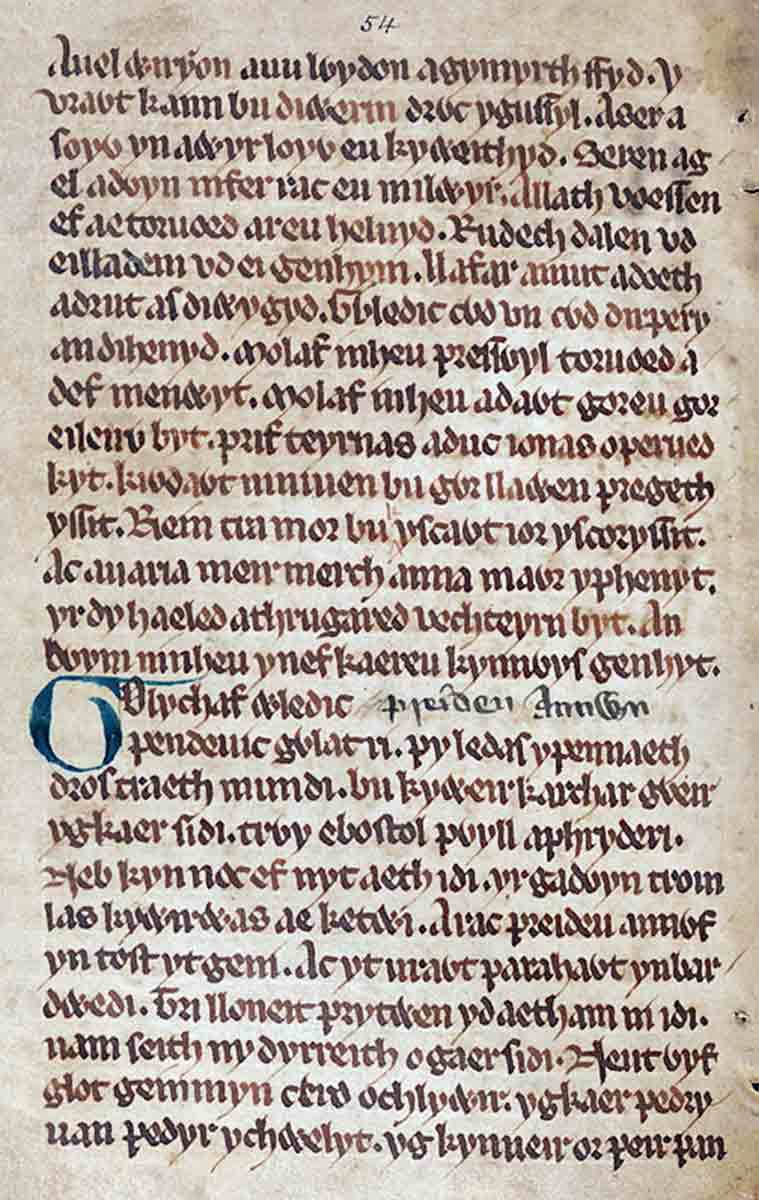 54
Auel wnyon auu lwydon agymyrth ffyd. y
vrawt kann bu diwerin drwc ygussyl. Aser a
soyw yn awyr loyw eu kyweithyd. Seren ag
el adwyn nifer rac eu milwyr. Allath voessen
ef ae toruoed areu heluyd. Rudech dalen vd
eilladem vd ei genhym. llafar amut adoeth
adrut as diwygyd. Gwledic cwd vn cwd dnpery
an dihenyd. molaf inheu presswyl toruoed a
def menwyt. molaf inheu adawt goreu gor
eilenw byt. prif teyrnas aduc ionas operued
kyt. kiwdawt niniuen bu gwr llawen pregeth
yssit. Riein tra mor bu kyscawt ior yscoryssit.
Ac auaria meir merch anna mawr yphenyt.
yr dy haeled athrugared vechteyrn byt. An
bwym ninheu ynef kaereu kynnwys genhyt.
Golychaf wledic preiden Annwn
pendeuic gwlat ri. py ledas ypennaeth
dros traeth mundi. bu kyweir karchar gweir
ygkaer sidi. trwy ebostol pwyll aphryderi.
Neb kyn noc ef nyt aeth idi. yr gadwyn trom
las kywirwas ae ketwi. Arac preideu annwf
yn tost yt geni. Ac yt urawt parahawt ynbar
dwedi. Tri lloneit prytwen yd aetham ni idi.
nam seith ny dyrreith o gaer sidi. Neut wyf
glot geinmyn cerd ochlywir. ygkaer pedry
uan pedyr ychwelyt. yg kynneir or peir pan